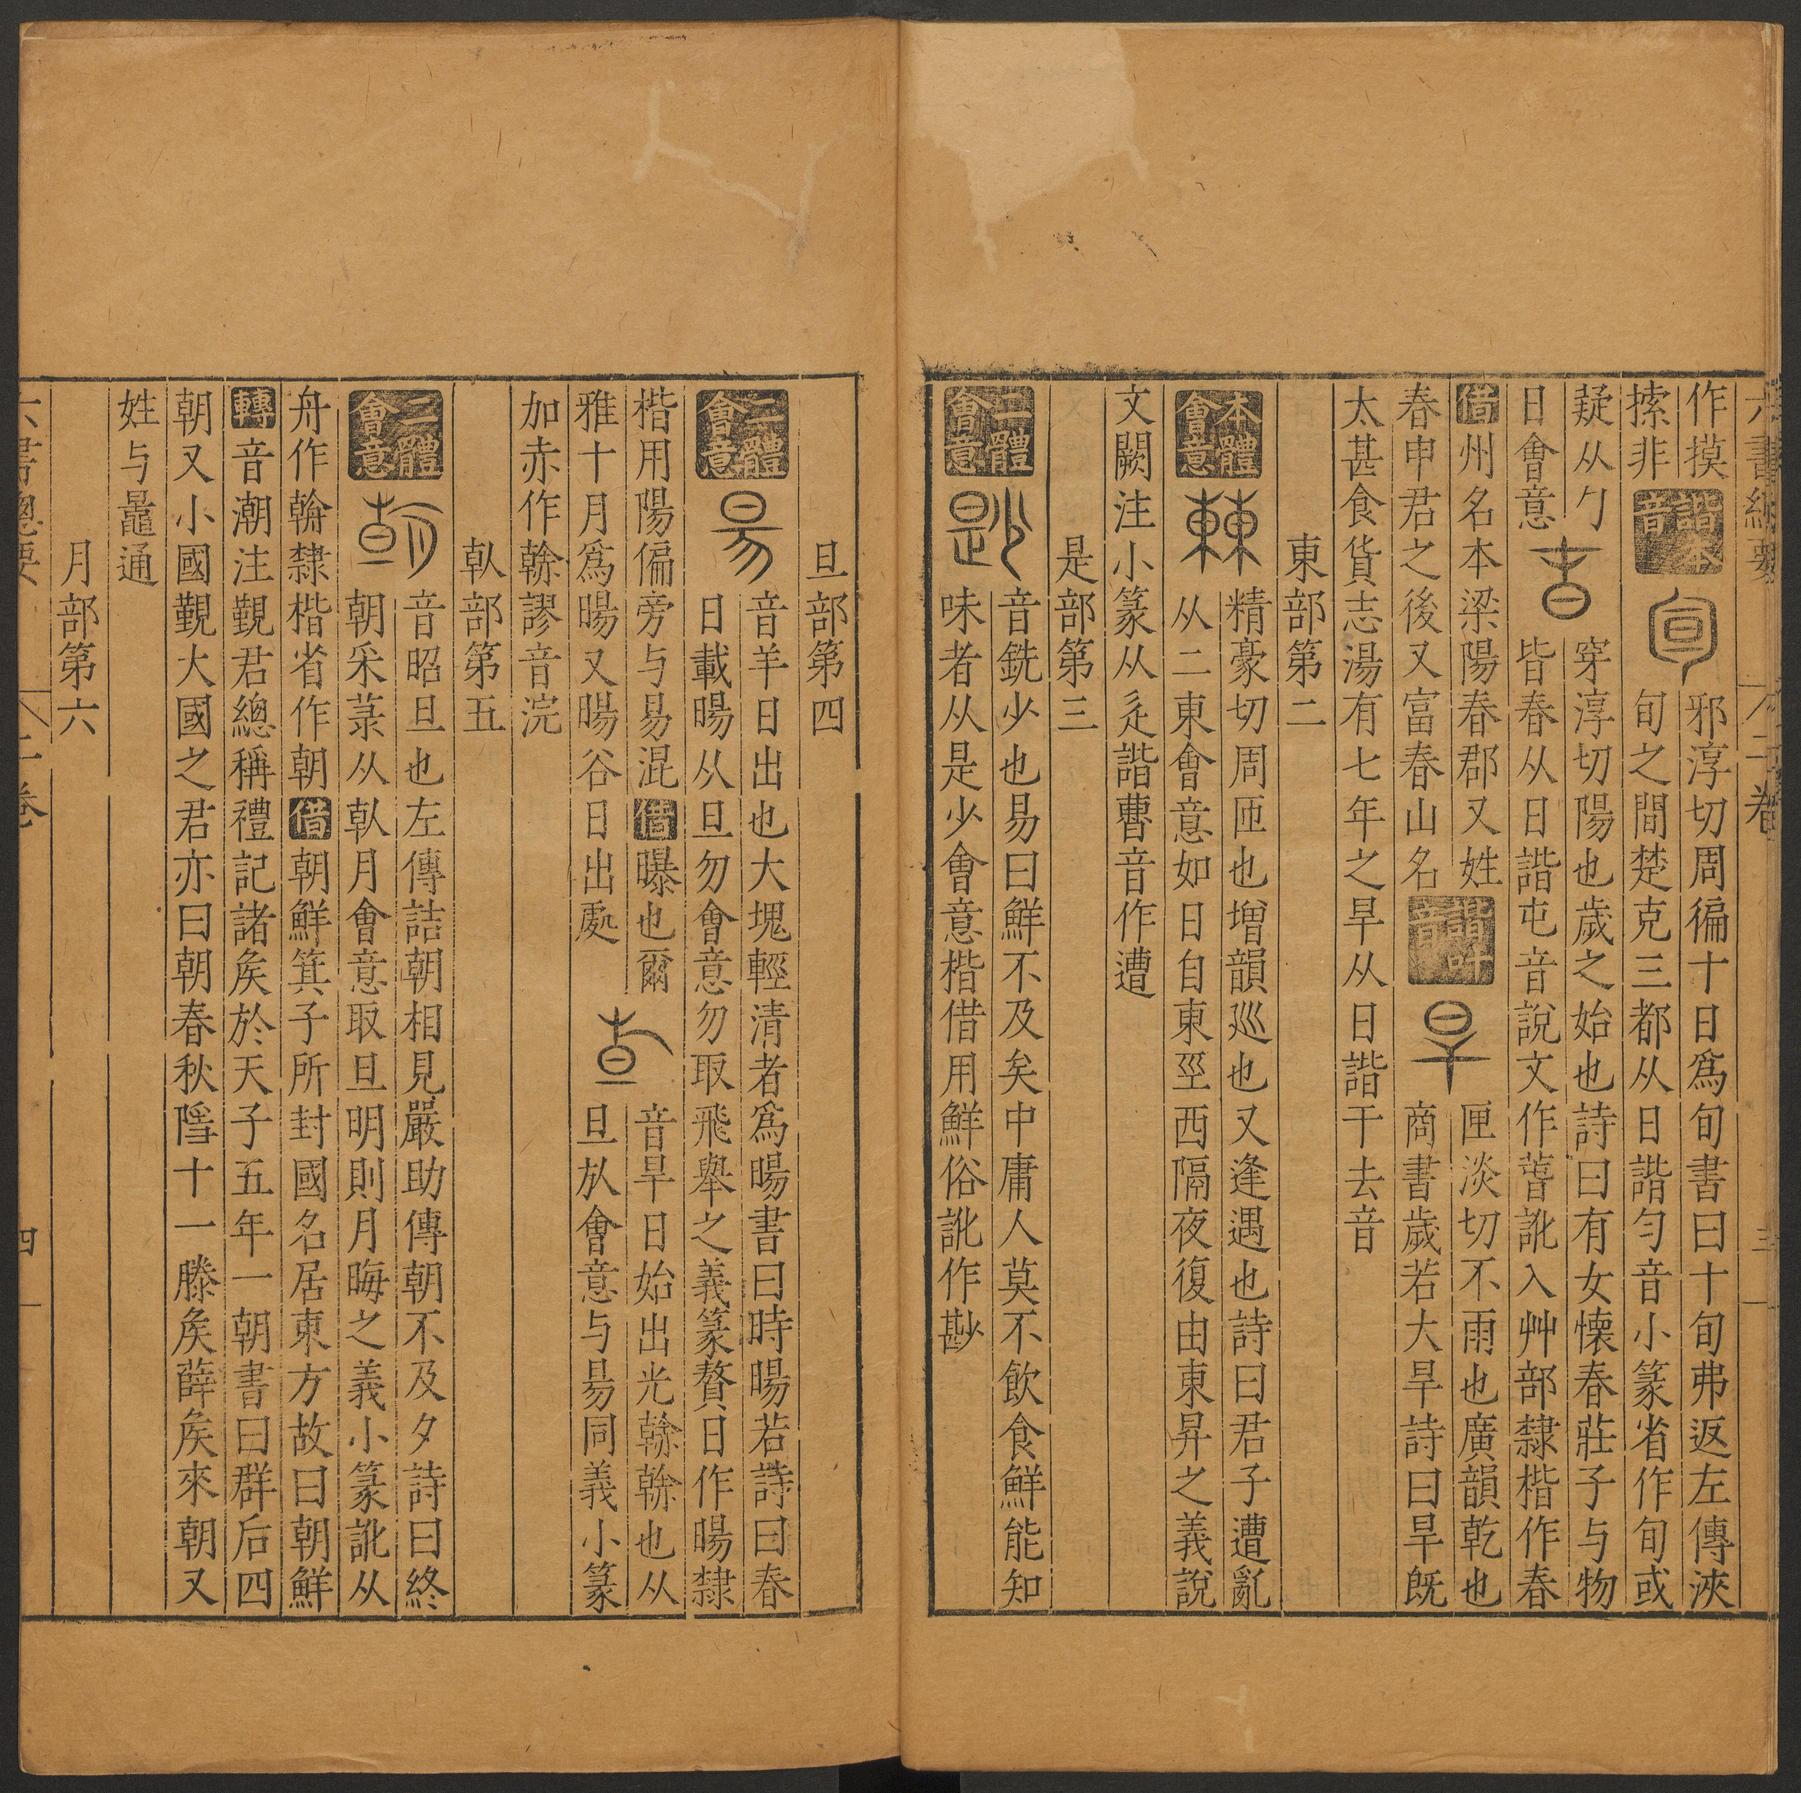 六書總要 二卷 三
作摸
𢱢非 諧本音 邪淳切周徧十日爲旬書曰十旬弗返左傳浹
旬之間楚克三都从日諧勻音小篆省作旬或
疑从勹
日會意 穿淳切陽也歲之始也詩曰有女懷春莊子与物
皆春春从日諧屯音說文作萅訛入艸部隸楷作春
借州名本梁陽春郡又姓
春申君之後又富春山名 諧叶音 匣淡切不雨也廣韻乾也
商書歲若大旱詩曰旱旣
太甚食貨志湯有七年之旱从日諧干去音
東部第二
本體會意 𣍘 精豪切周匝也增韻廵也又逢遇也詩曰君子遭亂
从二東會意如日自東巠西隔夜復由東昇之義說
文闕注小篆从辵諧曹音作遭
是部第三
二體會意 尟 音銑少也易曰鮮不及矣中庸人莫不飲食鮮能知
味者从是少會意楷借用鮮俗訛作尠
旦部第四
二體會意 昜 音羊日出也大塊輕清者爲暘書曰時暘若詩曰春
日載暘从旦勿會意勿取飛舉之義篆贅日作暘隸
楷用陽偏旁与易混借曝也爾
雅十月爲暘又暘谷日出處 倝 音旱日始出光倝倝也从
旦㫃會意与昜同義小篆
加赤作榦謬音浣
倝部第五
二體會意 音昭旦也左傳詰朝相見嚴助傳朝不及夕詩曰終
朝采菉从倝月會意取旦明則月晦之義小篆訛从
舟作𦩻隸楷省作朝借朝鮮箕子所封國名居東方故曰朝鮮
轉音潮注覲君總稱禮記諸矦於天子五年一朝書曰群后四
朝又小國覲大國之君亦曰朝春秋隱十一滕矦薛矦來朝又
姓与鼂通
月部第六
六書總要 二卷 四